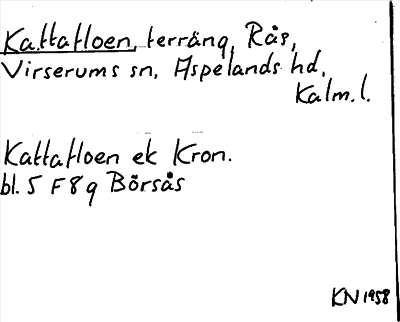 Kattafloen, terräng, Rås,
Virserums sn, Aspelands hd,
Kalm.l.
Kattafloen ek Kron.
bl. 5 F 8 g Börsås
KN 1958